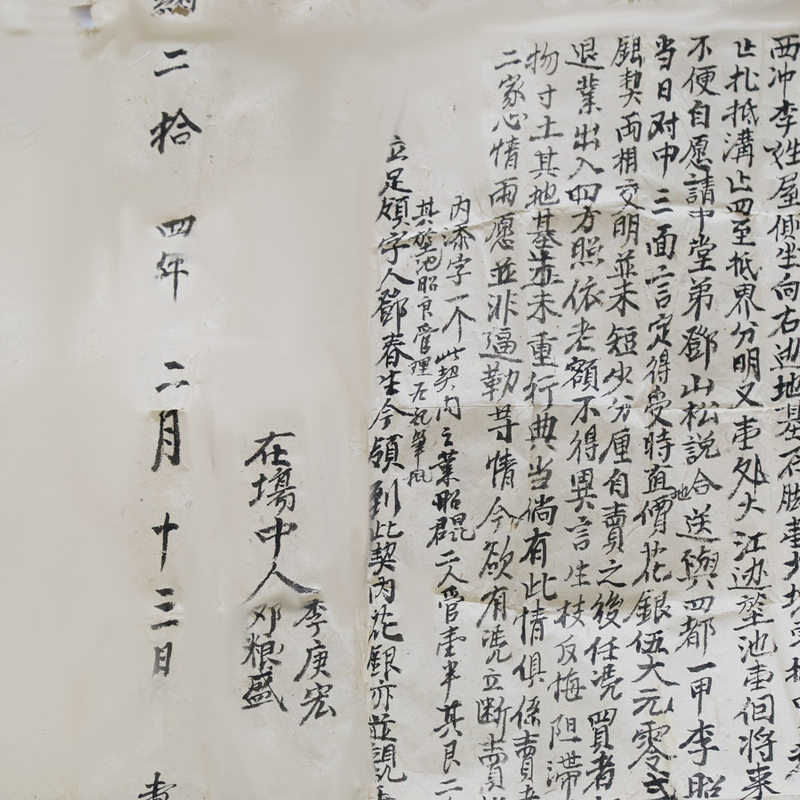 西冲李姓屋側坐向右邊地基石脚壹
止扎抵溝止四至抵界分明又壹処大江边茔池壹佰將來
不便自愿請中堂弟鄧山松説合送與四都一甲李昭
地
当日对中三面言定得受時值價花銀伍大元零弍
銀契両相交明並未短少分厘自賣之後任凴買者
退業出入四方照依老額不得異言生枝反悔阻滯
物寸土其地基並未重行典当倘有此情俱係賣者
二家心情兩愿並非逼勒等情今欲有凴立断賣
内添字一个此契内之業昭昆君二人管壹半其艮二
其茔池昭艮管理
立足領字人鄧春生今領到此契内花銀亦並親
在場中人
李庚宏
邓粮盛
二拾四年二月十三日